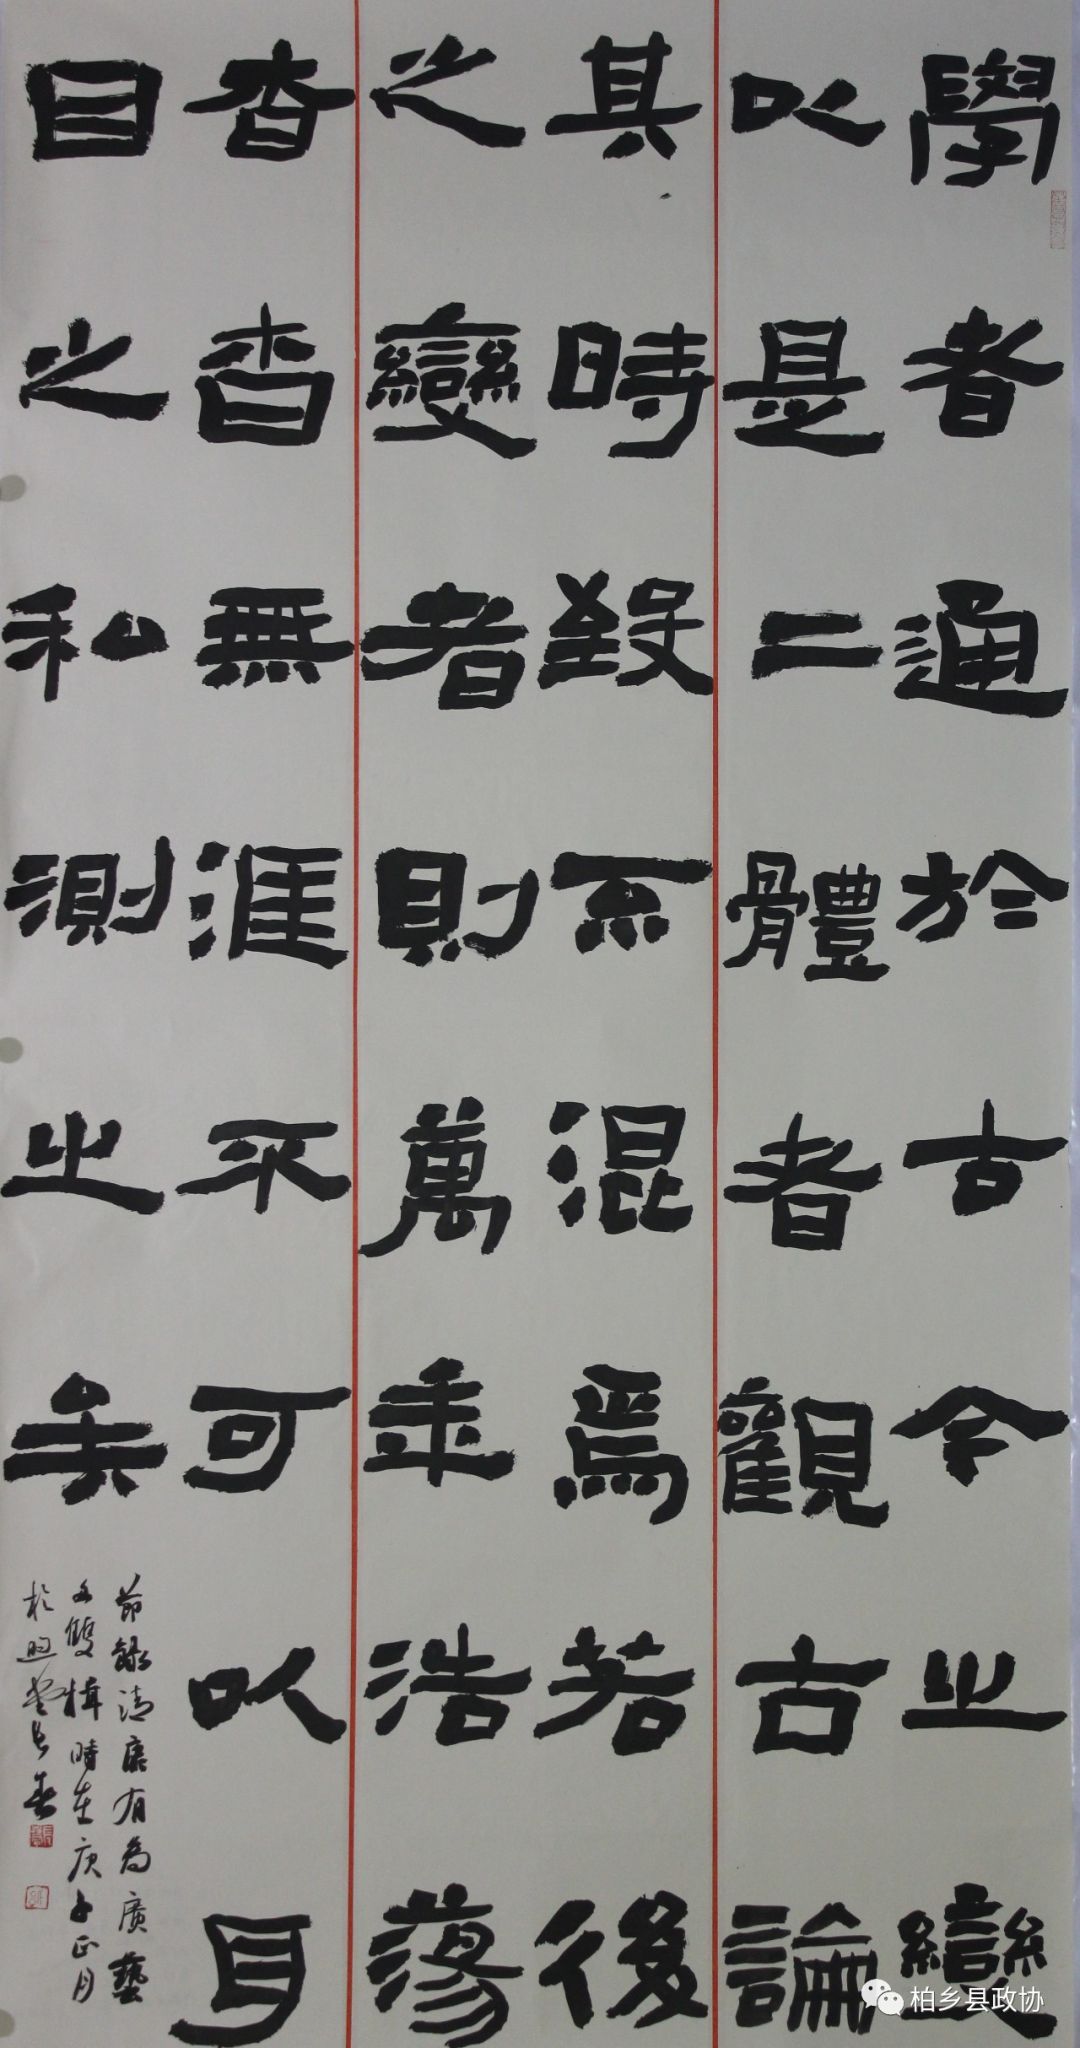 學者通於古今之變
以是二體者觀古論
其時致不混焉若後
之變者則萬年浩蕩
杳杳無涯不可以耳
目之私測之矣
節録清康有為廣藝
舟雙楫時在庚子正月
於堂長春
柏乡县政协